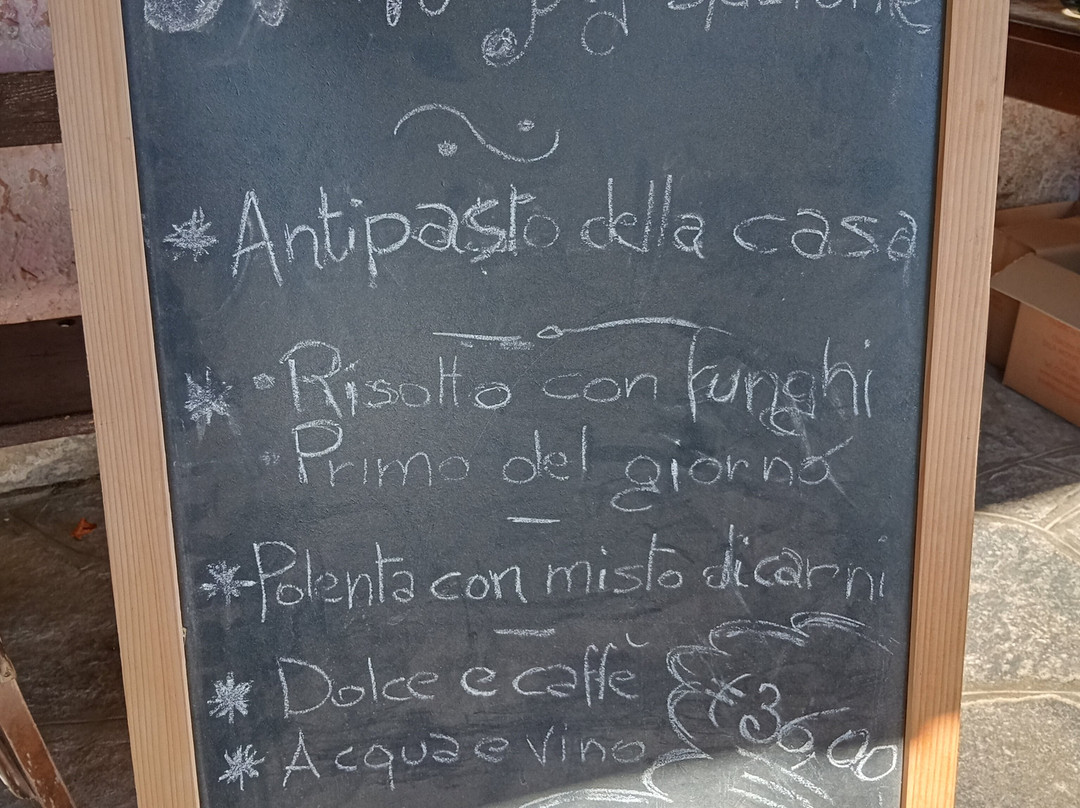 * Antipasto della casa
* • Risotto con funghi
• Primo del giorno
* Polenta con misto di carni
* Dolce e caffè
* Acqua e vino
* 36,00